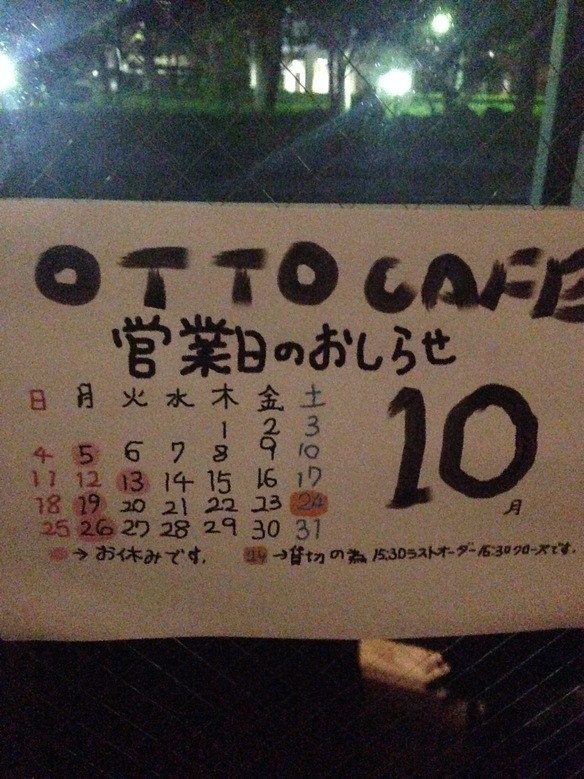 OTTO CAFE
営業日のおしらせ
日 月 火 水 木 金 土
1 2 3
4 5 6 7 8 9 10
11 12 13 14 15 16 17
18 19 20 21 22 23 24
25 26 27 28 29 30 31
10月
→お休みです。 24→貸切の為 15:30ラストオーダー16:30クローズです。